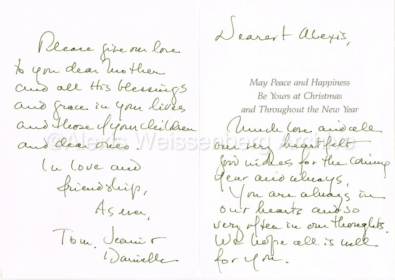 Dearest Alexis,
May Peace and Happiness
Be Yours at Christmas
and Throughout the New Year
Much love and all
our very heartfelt
good wishes for the coming
year and always.
You are always in
our hearts and so
very often in our thoughts.
We hope all is well
for you.
Please give our love
to you dear Mother
and all His blessings
and grace in your lives
and those of your children
and dear ones.
In love and
friendship,
As ever,
Tom, Jeannie
Danielle
© Alexis Weissenberg Archive